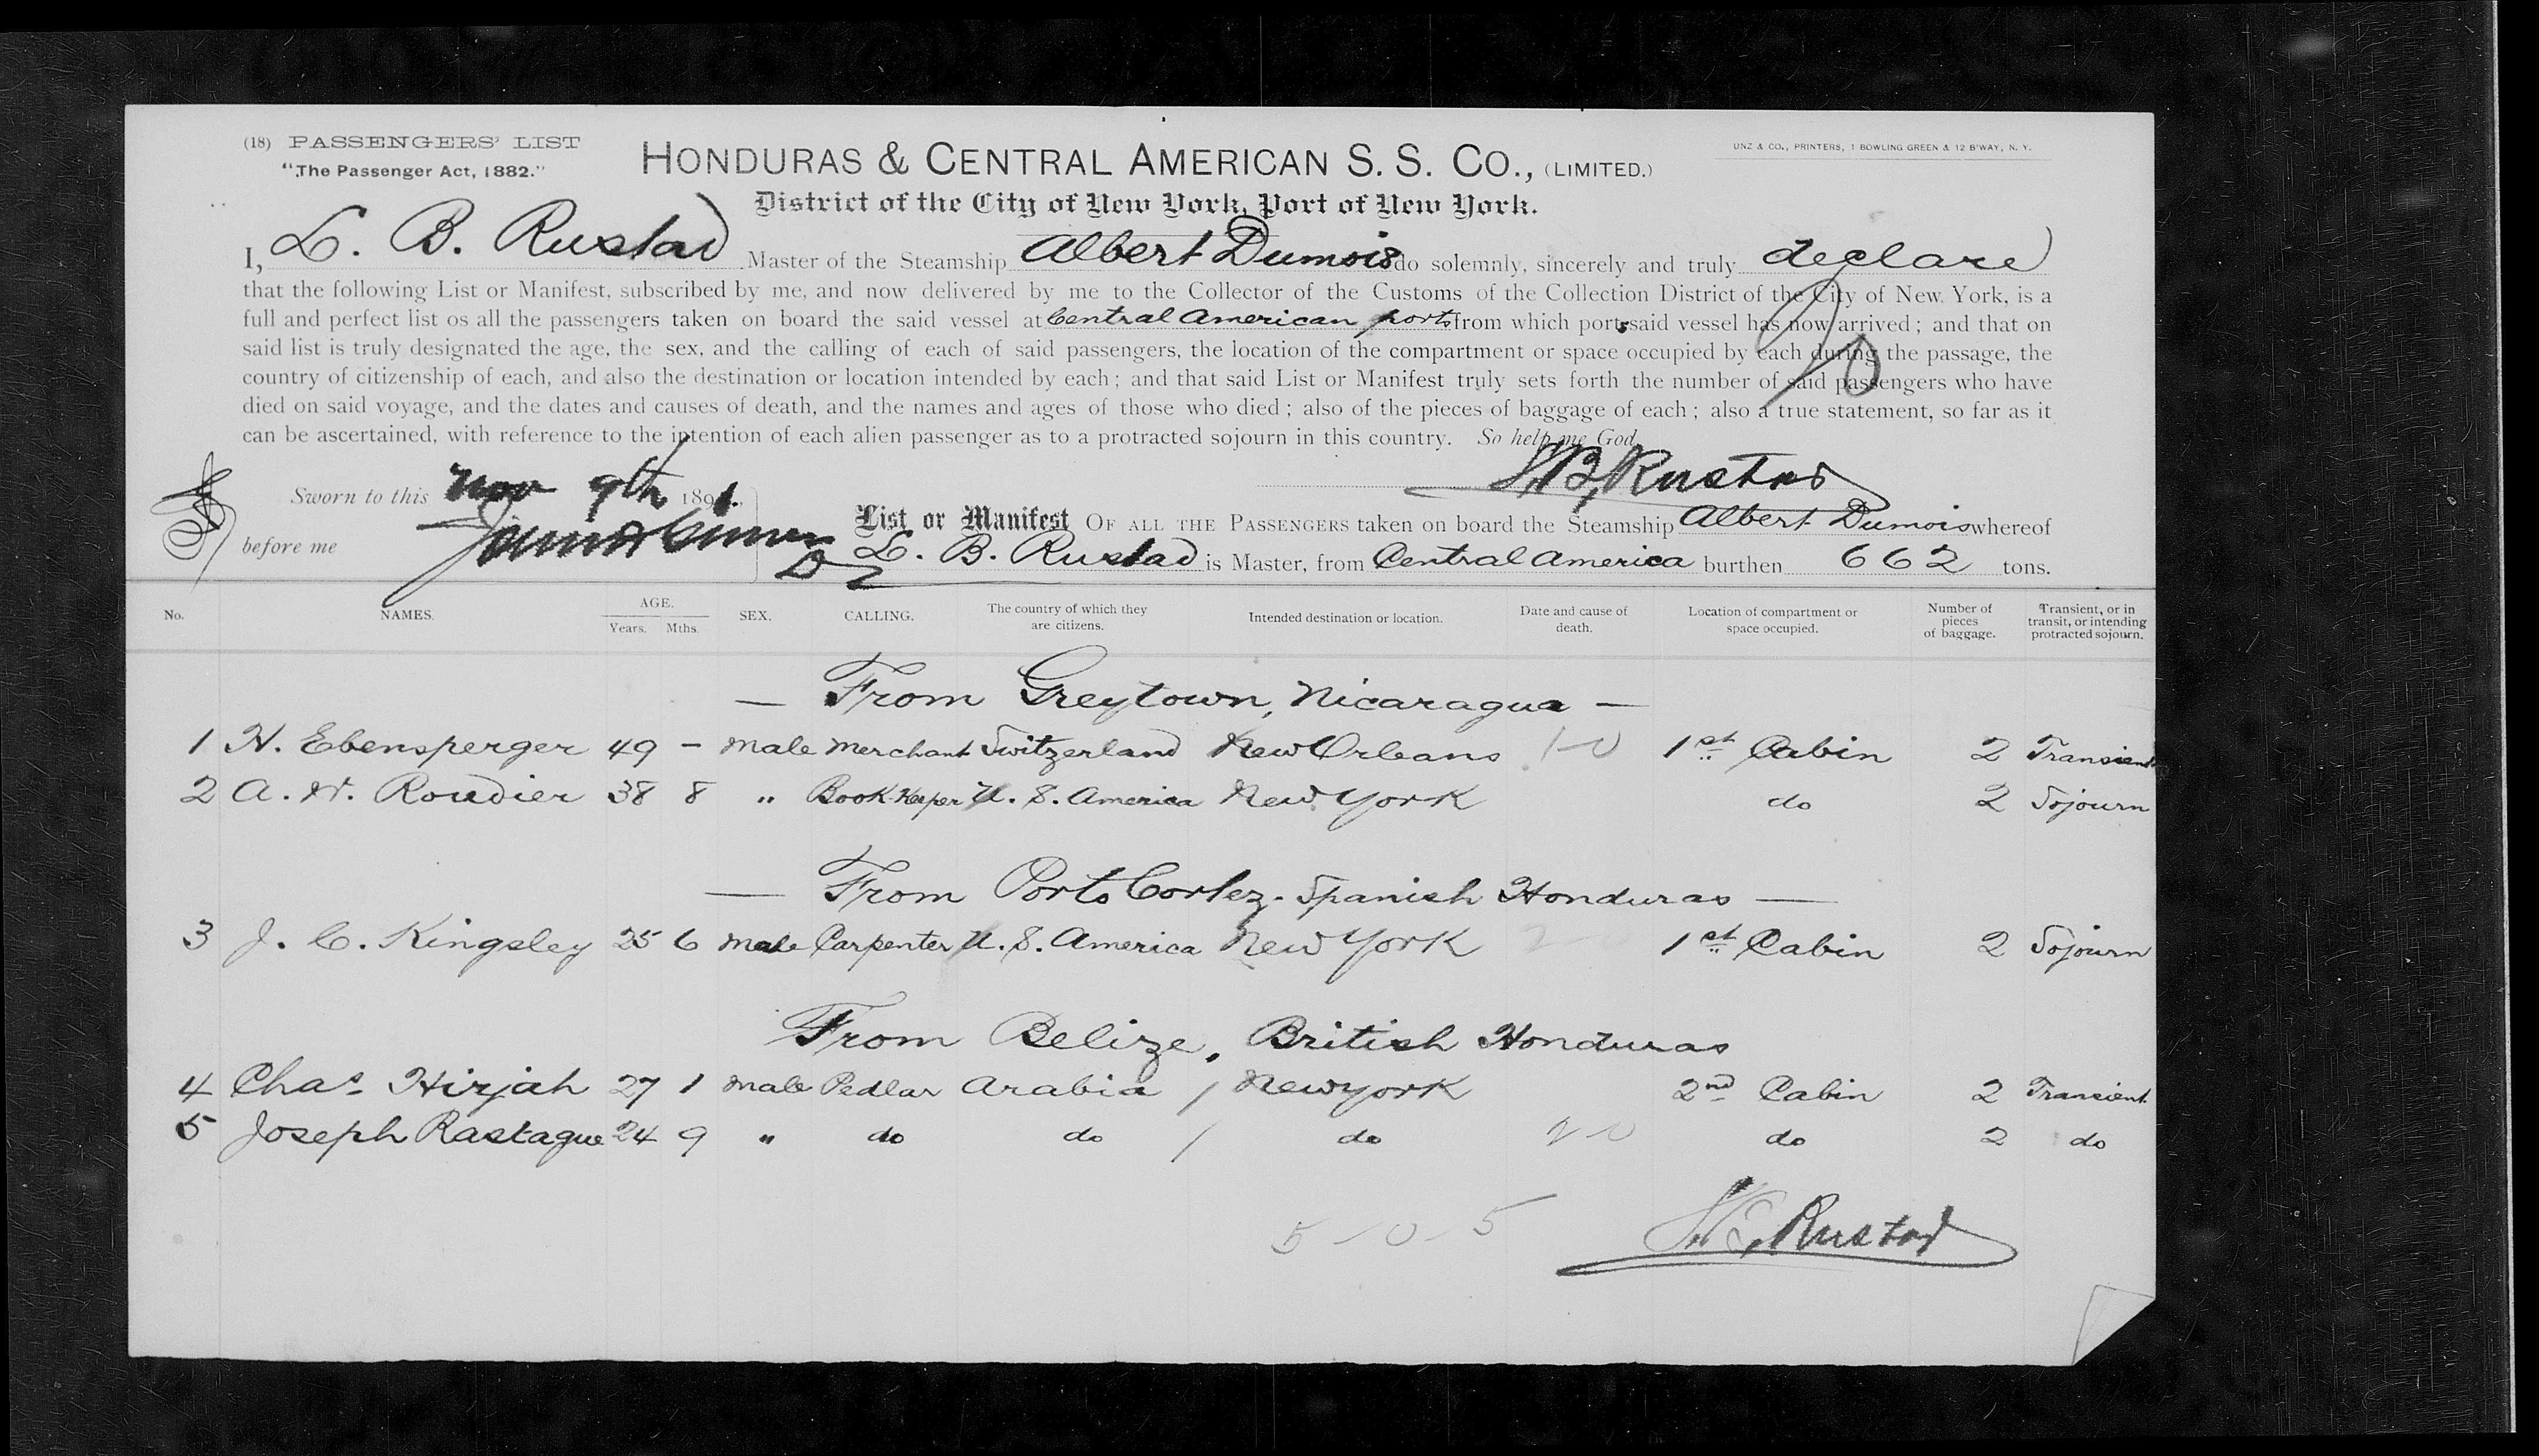 (18) PASSENGERS' LIST
"The Passenger Act, 1882."
HONDURAS & CENTRAL AMERICAN S. S. CO., (LIMITED.)
UNZ & CO., PRINTERS, 1 BOWLING GREEN & 12 B'WAY, N. Y.
District of the City of New York, Port of New York.
I, L. B. Rustad Master of the Steamship Albert Dumois do solemnly, sincerely and truly declare
that the following List or Manifest, subscribed by me, and now delivered by me to the Collector of the Customs of the Collection District of the City of New York, is a
full and perfect list os all the passengers taken on board the said vessel at Central American ports from which ports said vessel has now arrived; and that on
said list is truly designated the age, the sex, and the calling of each of said passengers, the location of the compartment or space occupied by each during the passage, the
country of citizenship of each, and also the destination or location intended by each; and that said List or Manifest truly sets forth the number of said passengers who have
died on said voyage, and the dates and causes of death, and the names and ages of those who died; also of the pieces of baggage of each; also a true statement, so far as it
can be ascertained, with reference to the intention of each alien passenger as to a protracted sojourn in this country. So help me God
L. B. Rustad
Sworn to this Nov 9th 1891.
before me
List or Manifest OF ALL THE PASSENGERS taken on board the Steamship Albert Dumois whereof
L. B. Rustad is Master, from Central America burthen 662 tons.
No. NAMES. AGE. Years. Mths. SEX. CALLING. The country of which they are citizens. Intended destination or location. Date and cause of death. Location of compartment or space occupied. Number of pieces of baggage. Transient, or in transit, or intending protracted sojourn.
— From Greytown, Nicaragua —
1 H. Ebensperger 49 - Male Merchant Switzerland New Orleans 1-0 1st Cabin 2 Transient
2 A. W. Roudier 38 8 " Book-Keeper U. S. America New York do 2 Sojourn
— From Porto Cortez - Spanish Honduras —
3 J. C. Kingsley 25 6 Male Carpenter U. S. America New York 2 1st Cabin 2 Sojourn
From Belize, British Honduras
4 Chas Hirjah 27 1 Male Pedlar Arabia / New York 2nd Cabin 2 Transient
5 Joseph Rastague 24 9 " do do / do 20 do 2 do
5-0-5
L. B. Rustad